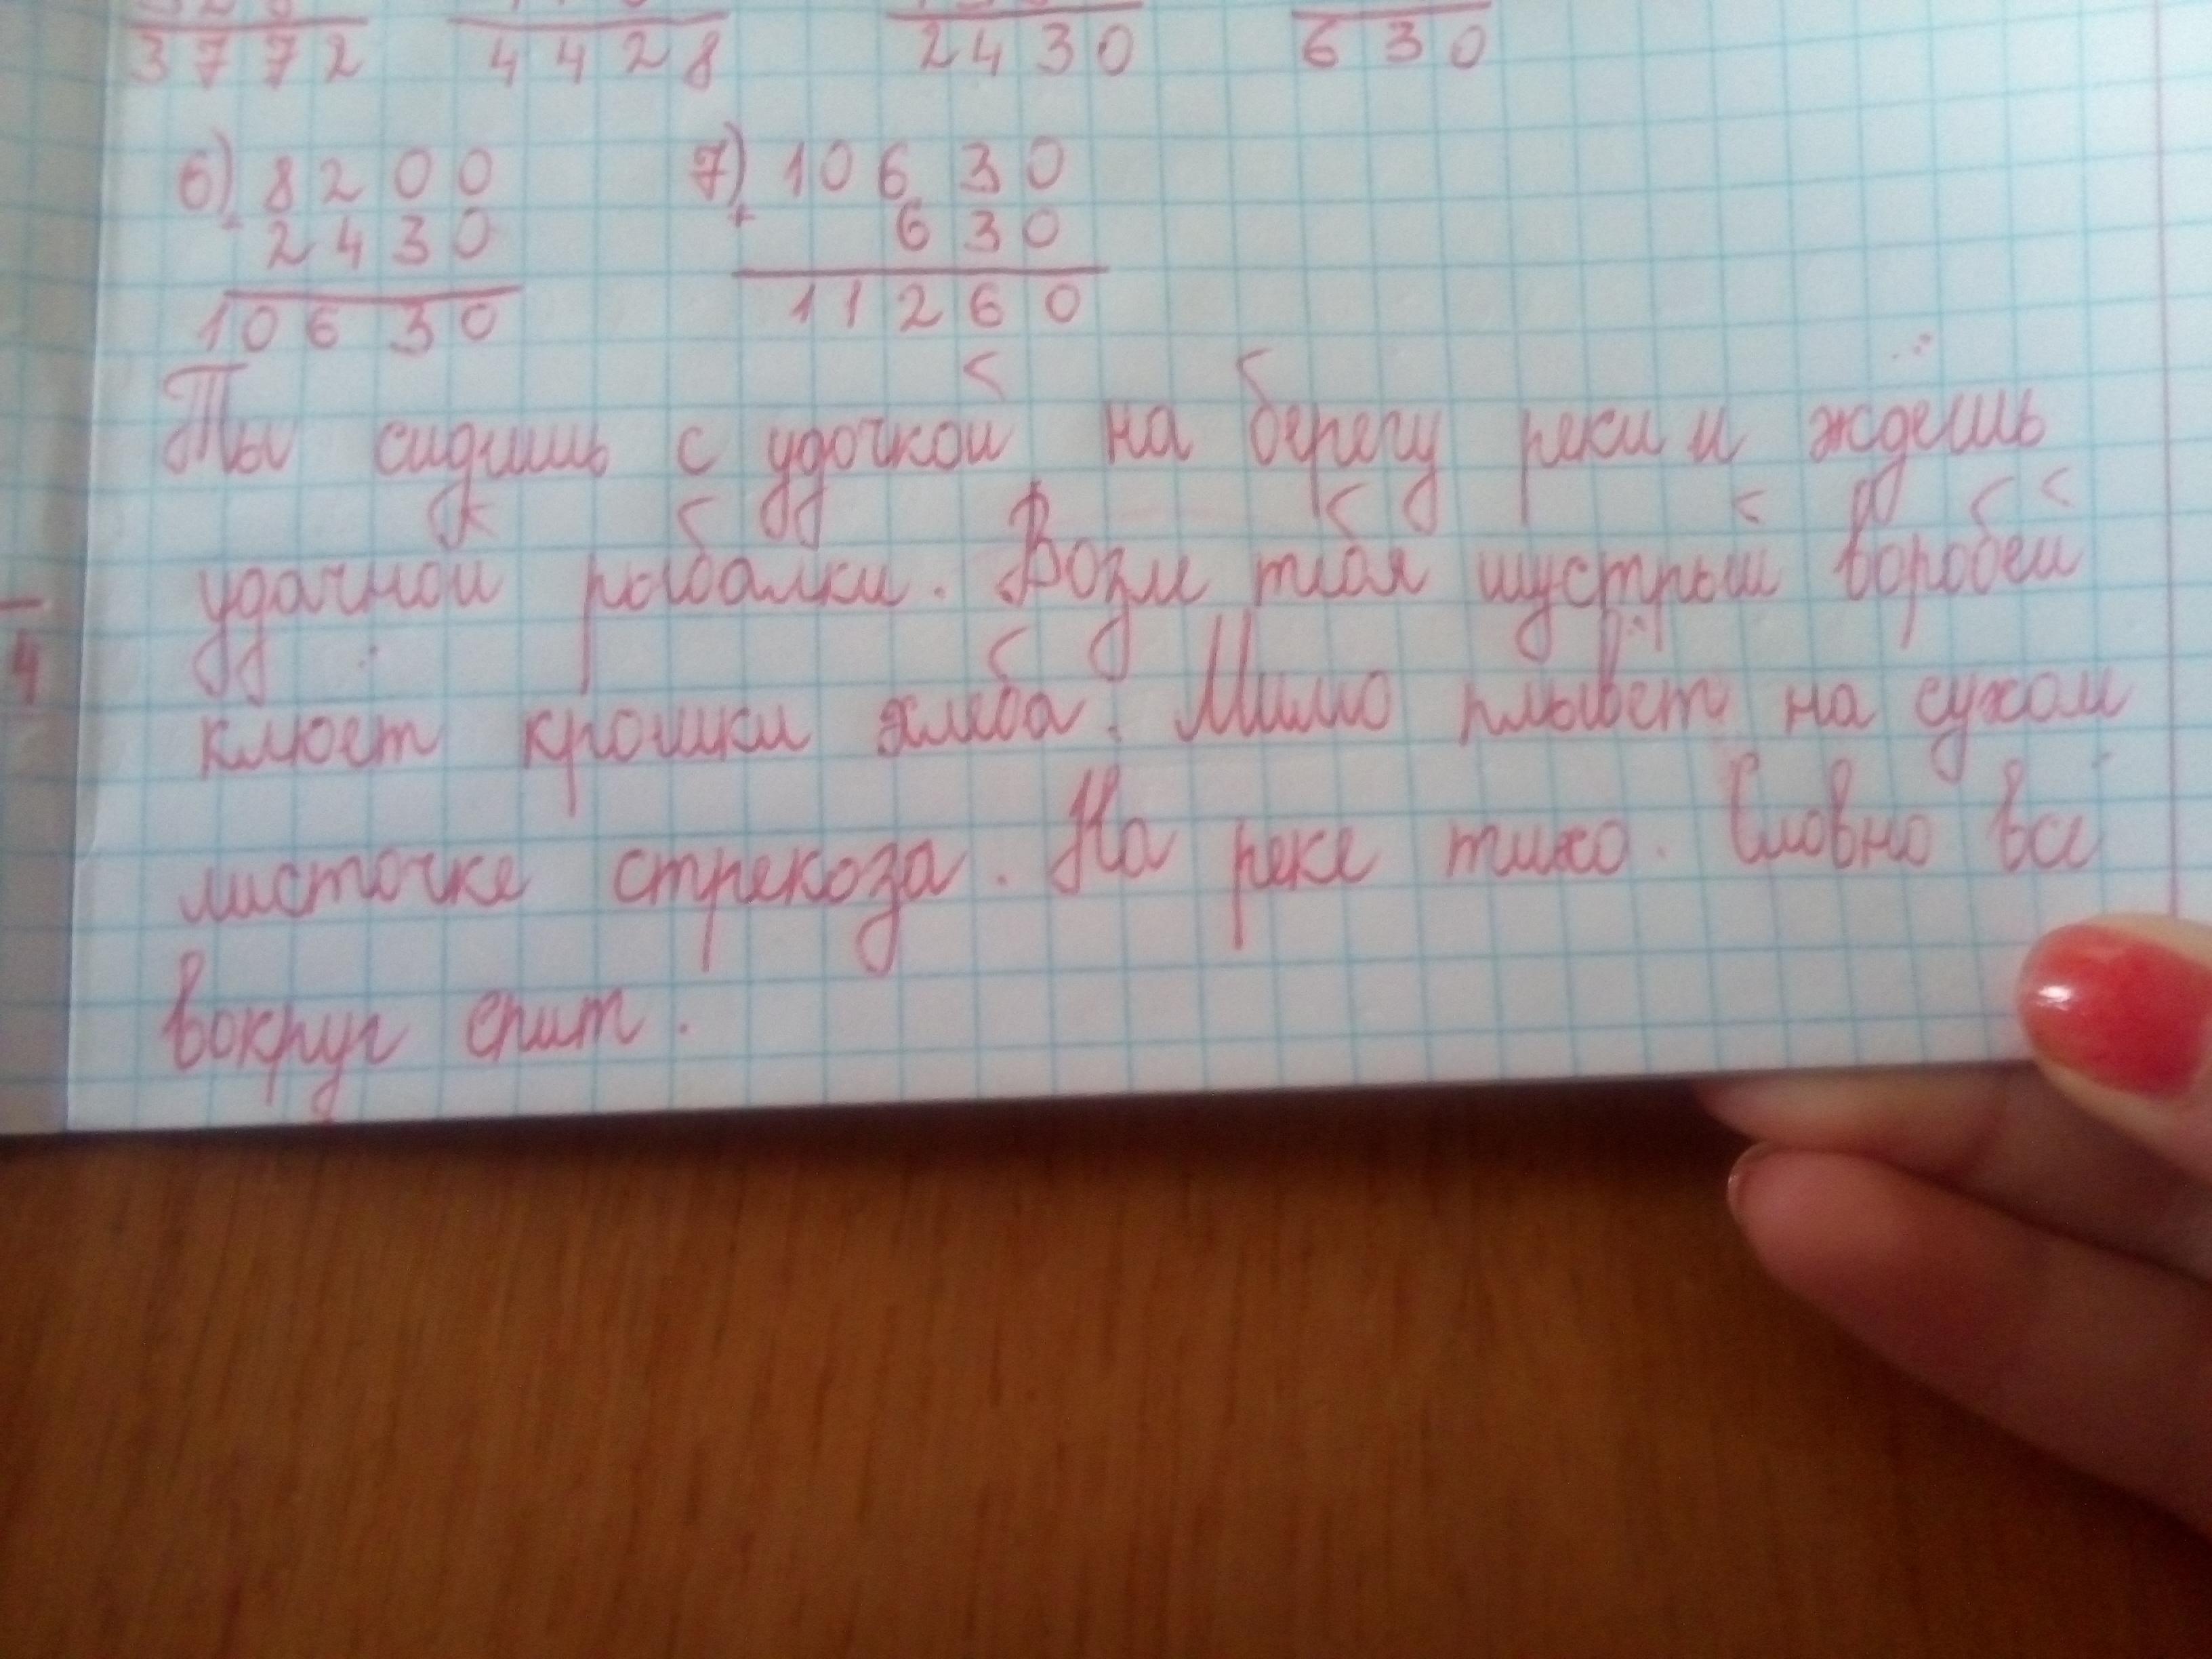 3772 4428 2430 630
6) 8200 7) 10630
+ 2430 + 630
10630 11260
Ты сидишь с удочкой на берегу реки и ждёшь
удачной рыбалки. Возле тебя шустрый воробей
клюёт крошки хлеба. Мимо плывёт на сухом
листочке стрекоза. На реке тихо. Словно всё
вокруг спит.
4